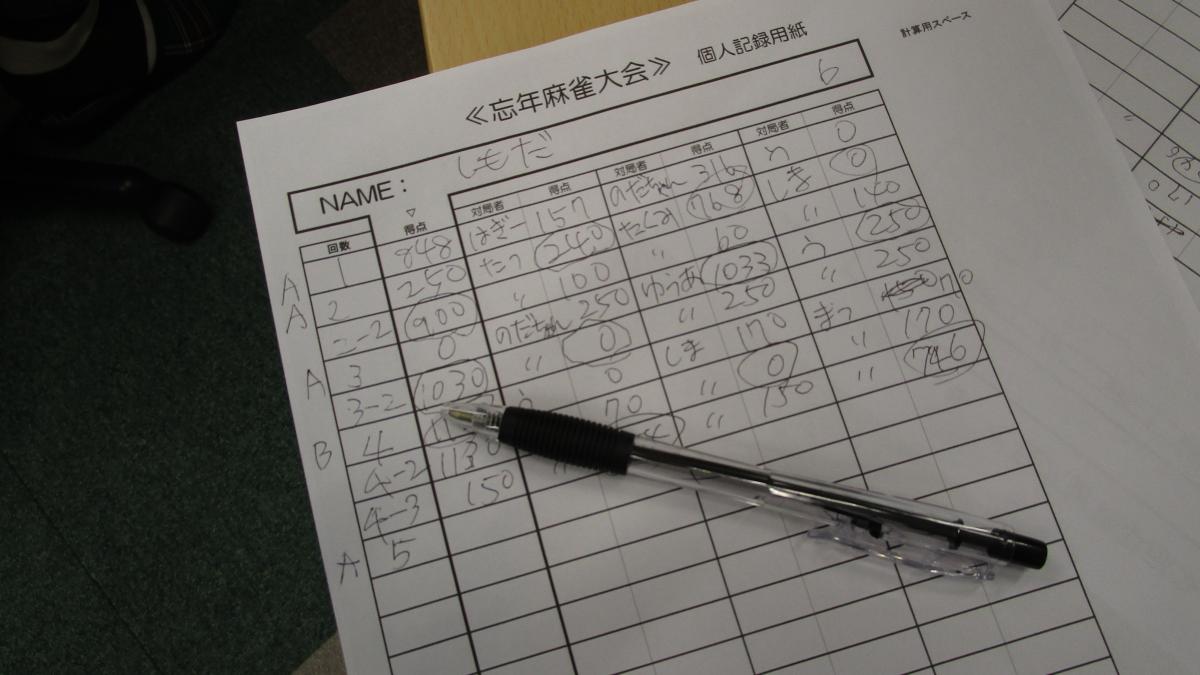 計算用スペース
≪忘年麻雀大会≫ 個人記録用紙
NAME: しもだ 6
回数 得点 対局者 得点 対局者 得点 対局者 得点
A 1 848 はぎー 157 のだちゃん う 0
A 2 250 たつ 240 たくみ 768 しま 0
2-2 900 〃 100 〃 60 〃 140
A 3 0 のだちゃん 250 ゆうあ 1033 う 250
3-2 1030 〃 0 〃 250 〃 250
B 4 0 しま 170 まつ 170
4-2 1130 70 〃 0 〃 170
4-3 150 〃 150 〃 746
A 5